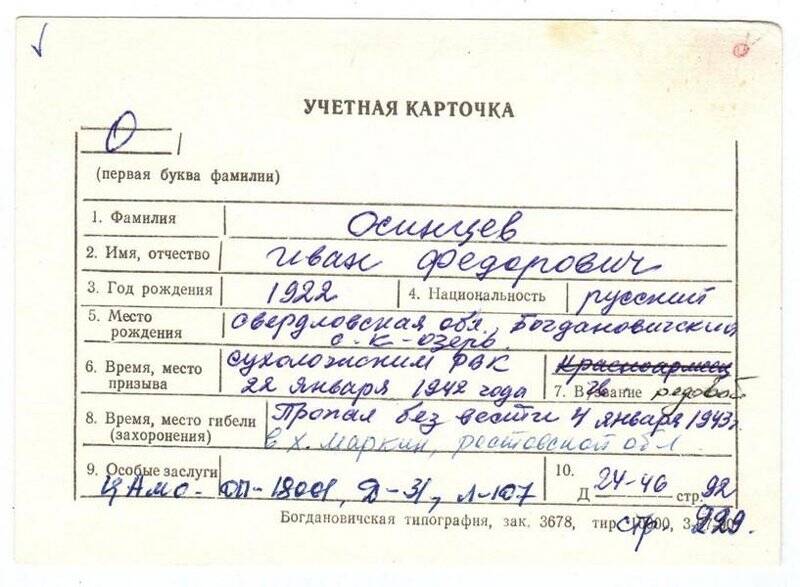 УЧЕТНАЯ КАРТОЧКА
О
(первая буква фамилии)
1. Фамилия Осинцев
2. Имя, отчество Иван Федорович
3. Год рождения 1922 4. Национальность русский
5. Место рождения Свердловская обл., Богдановичский
с. К-озерс.
6. Время, место призыва Сухоложским РВК
22 января 1942 года
Красноармеец
7. Звание редовой
8. Время, место гибели (захоронения) Пропал без вести 4 января 1943г.
в х. Маркин, ростовской обл.
9. Особые заслуги
ЦАМО- ОП-18001, Д-31, Л-107
10. Д 24-46 стр. 92
стр. 229.
Богдановичская типография, зак. 3678, тир.